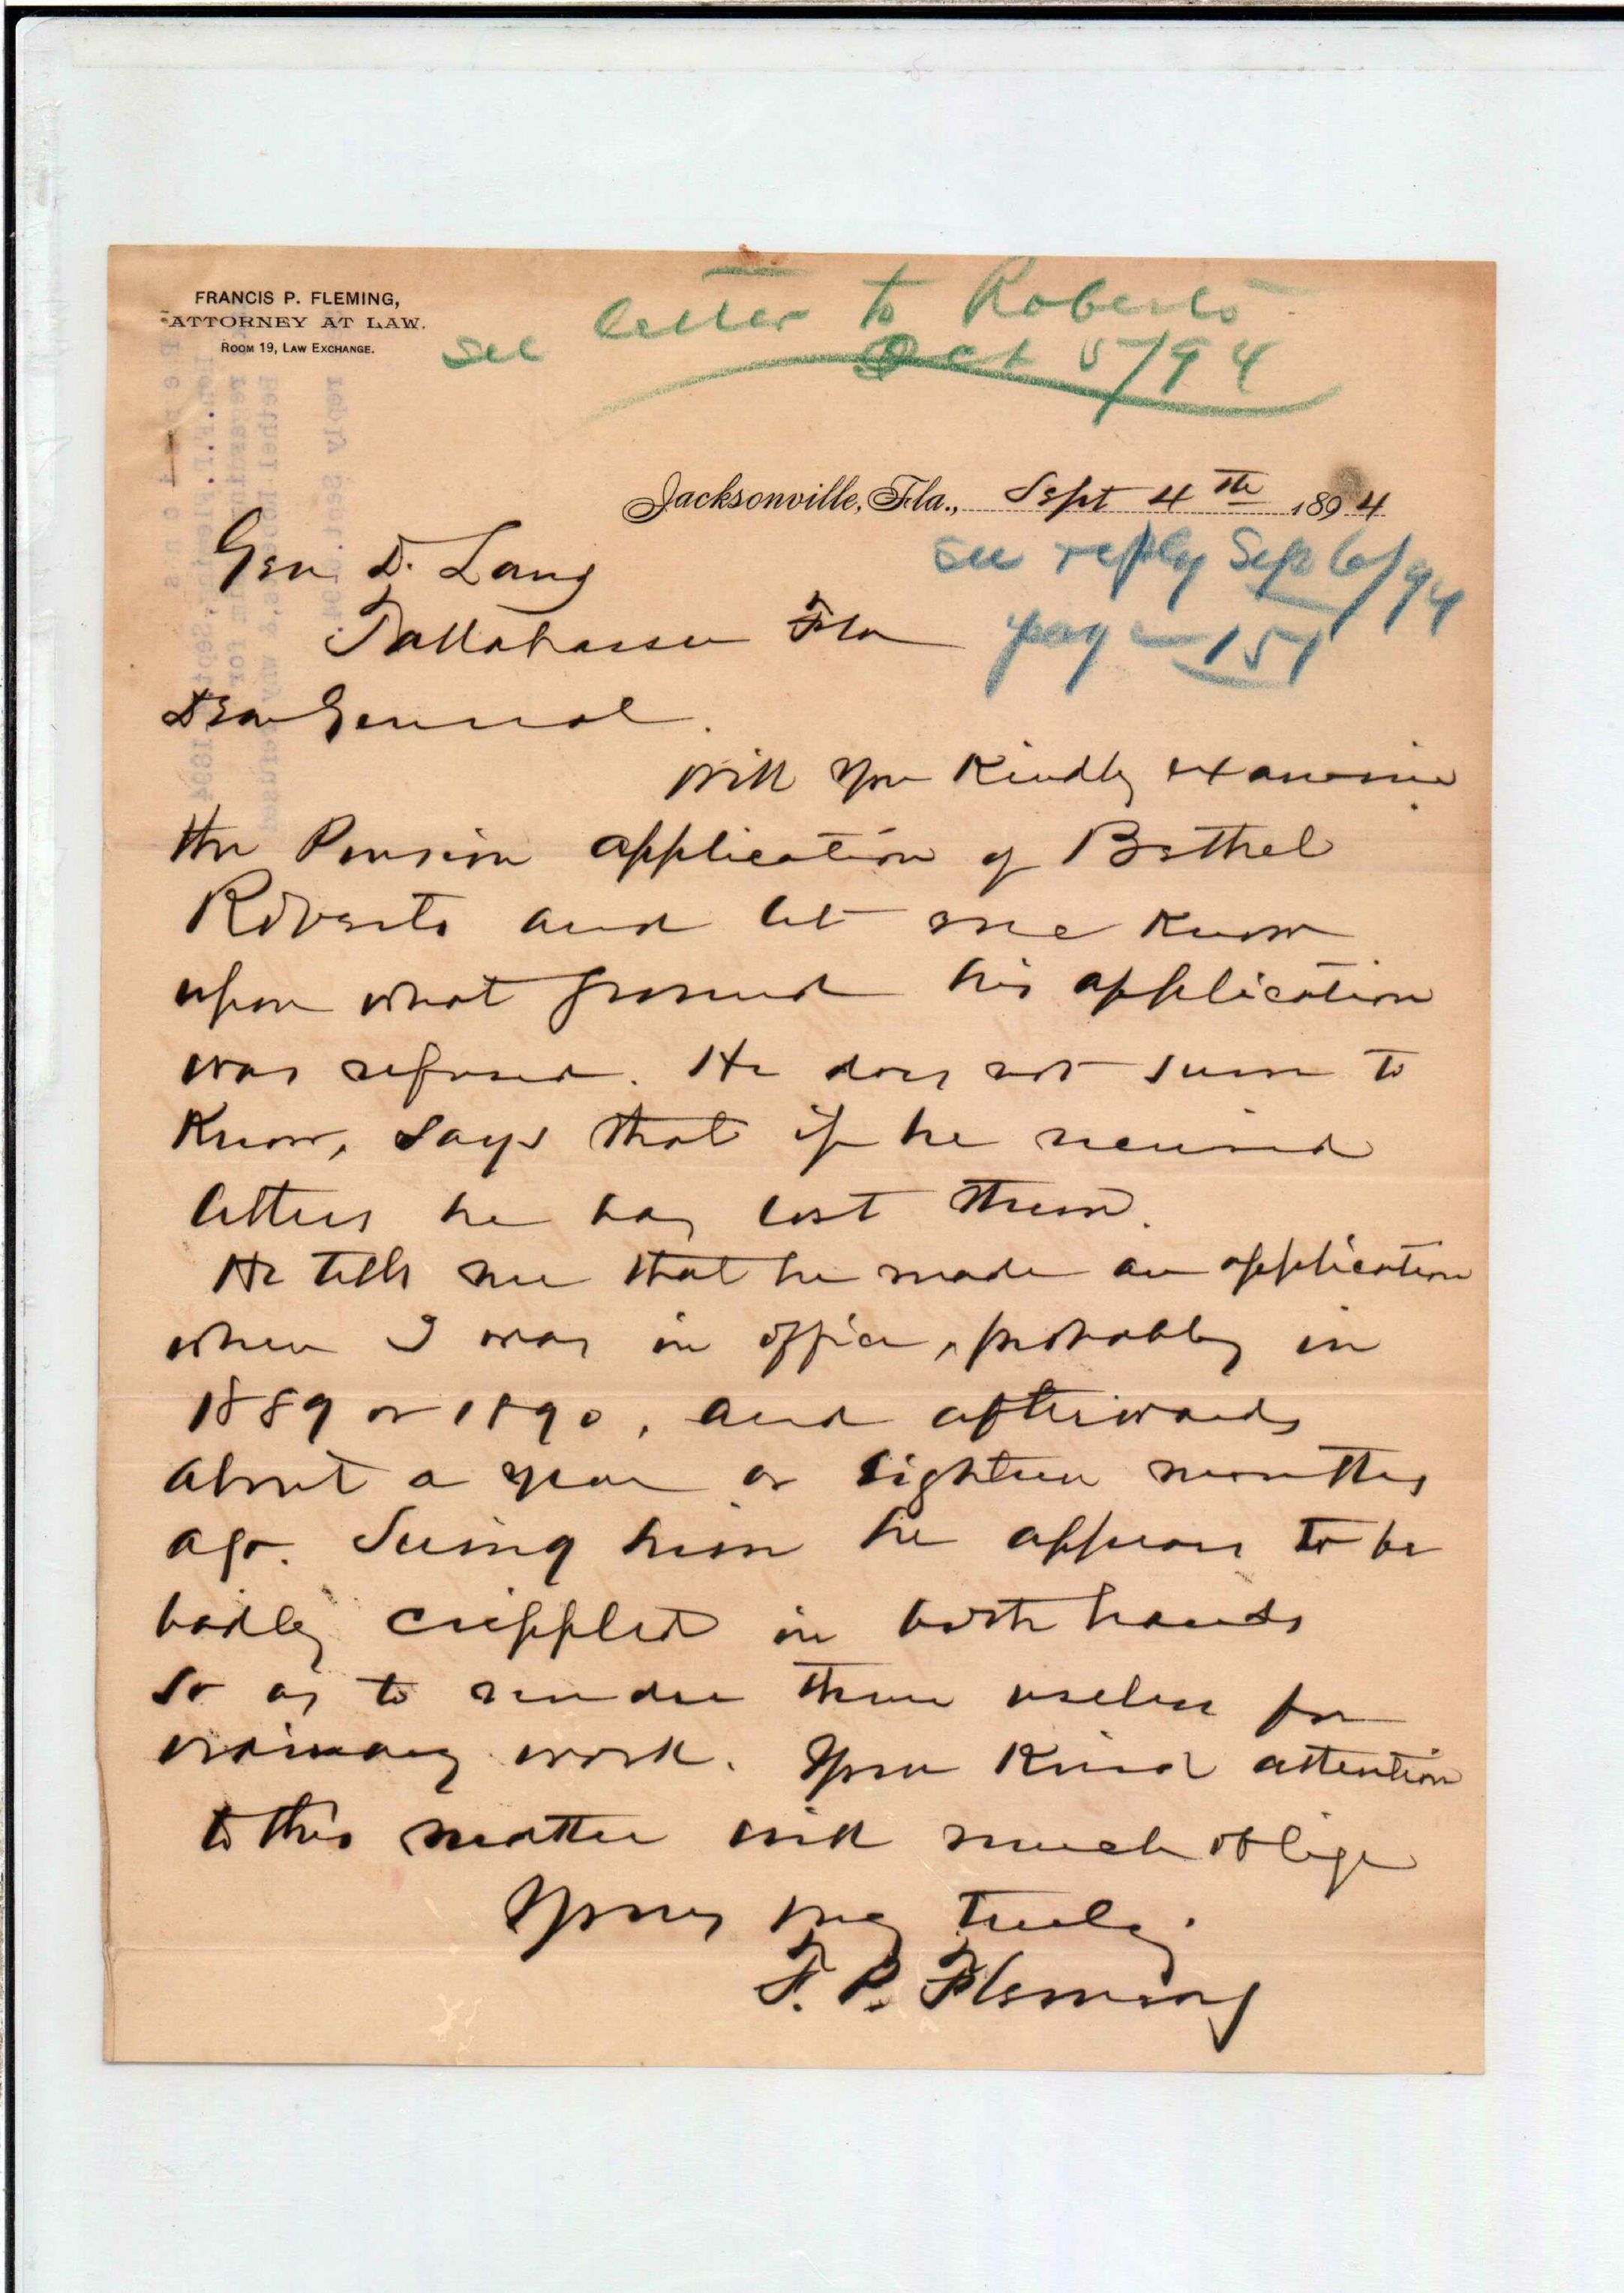 FRANCIS P. FLEMING,
ATTORNEY AT LAW.
ROOM 19, LAW EXCHANGE.
see letter to Roberts
Oct 5/94
Jacksonville, Fla., Sept 4th 1894
see reply Sep 6/94
page 151
Gen D. Lang
Tallahassee Fla
Dear General.
Will you kindly examine
the Pension application of Bethel
Roberts and let me know
upon what ground his application
was refused. He does not seem to
know, says that if he received
letters he has lost them.
He tells me that he made an application
when I was in office, probably in
1889 or 1890, and afterwards
about a year or eighteen months
ago. Seeing him he appears to be
badly crippled in both hands
so as to render them useless for
ordinary work. Your kind attention
to this matter will much oblige
Yours very truly.
F. P. Fleming